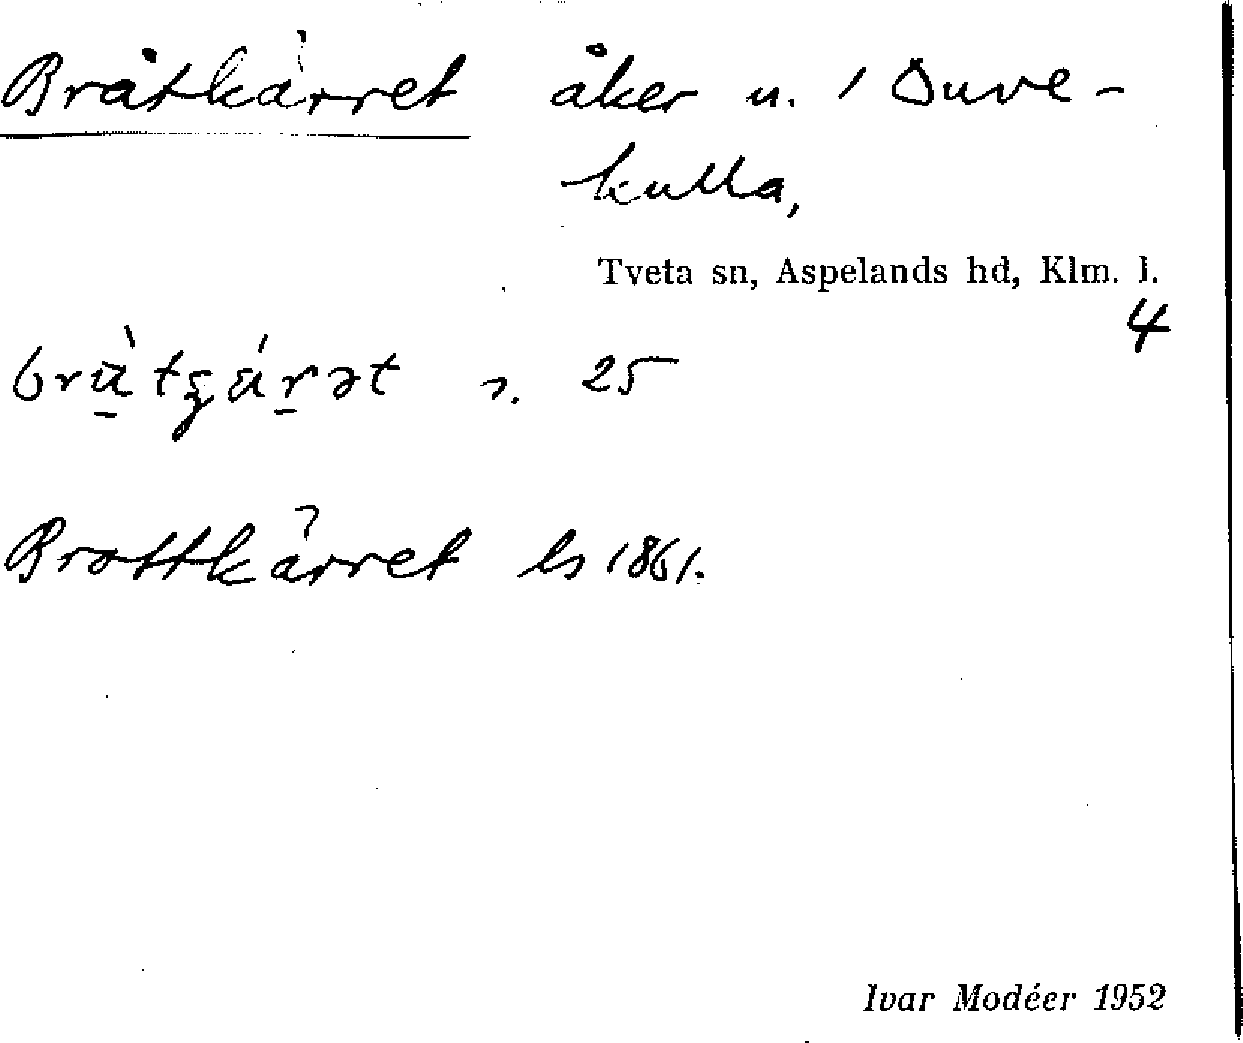 Bråtkärret åker u. 1 Duve-
kulla,
Tveta sn, Aspelands hd, Klm. l.
4
25
Brottkärret ls 1861.
Ivar Modéer 1952